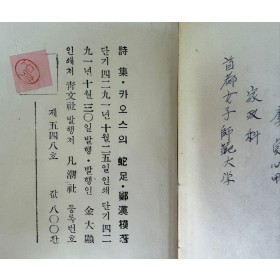 家政科
首都女子師範大学
詩集·카오스의 蛇足·鄭漢模著
단기 四二九一年 十月 二五일 인쇄 단기 四二
九一年 十月 三〇일 발행·발행인 金大顯
인쇄처 靑文社 발행처 凡潮社 등록번호
제五四八호 값 八〇〇환